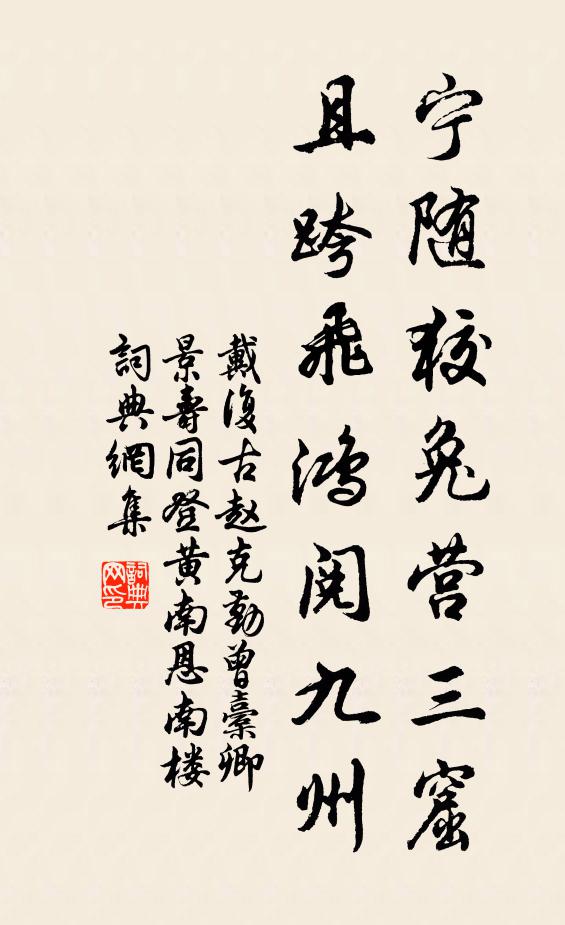 宁随狡兔营三窟
且跨飞鸿阅九州
戴復古赵克勤曾橐卿
景壽同登黄南恩南楼
詞典網集
詞典
网印